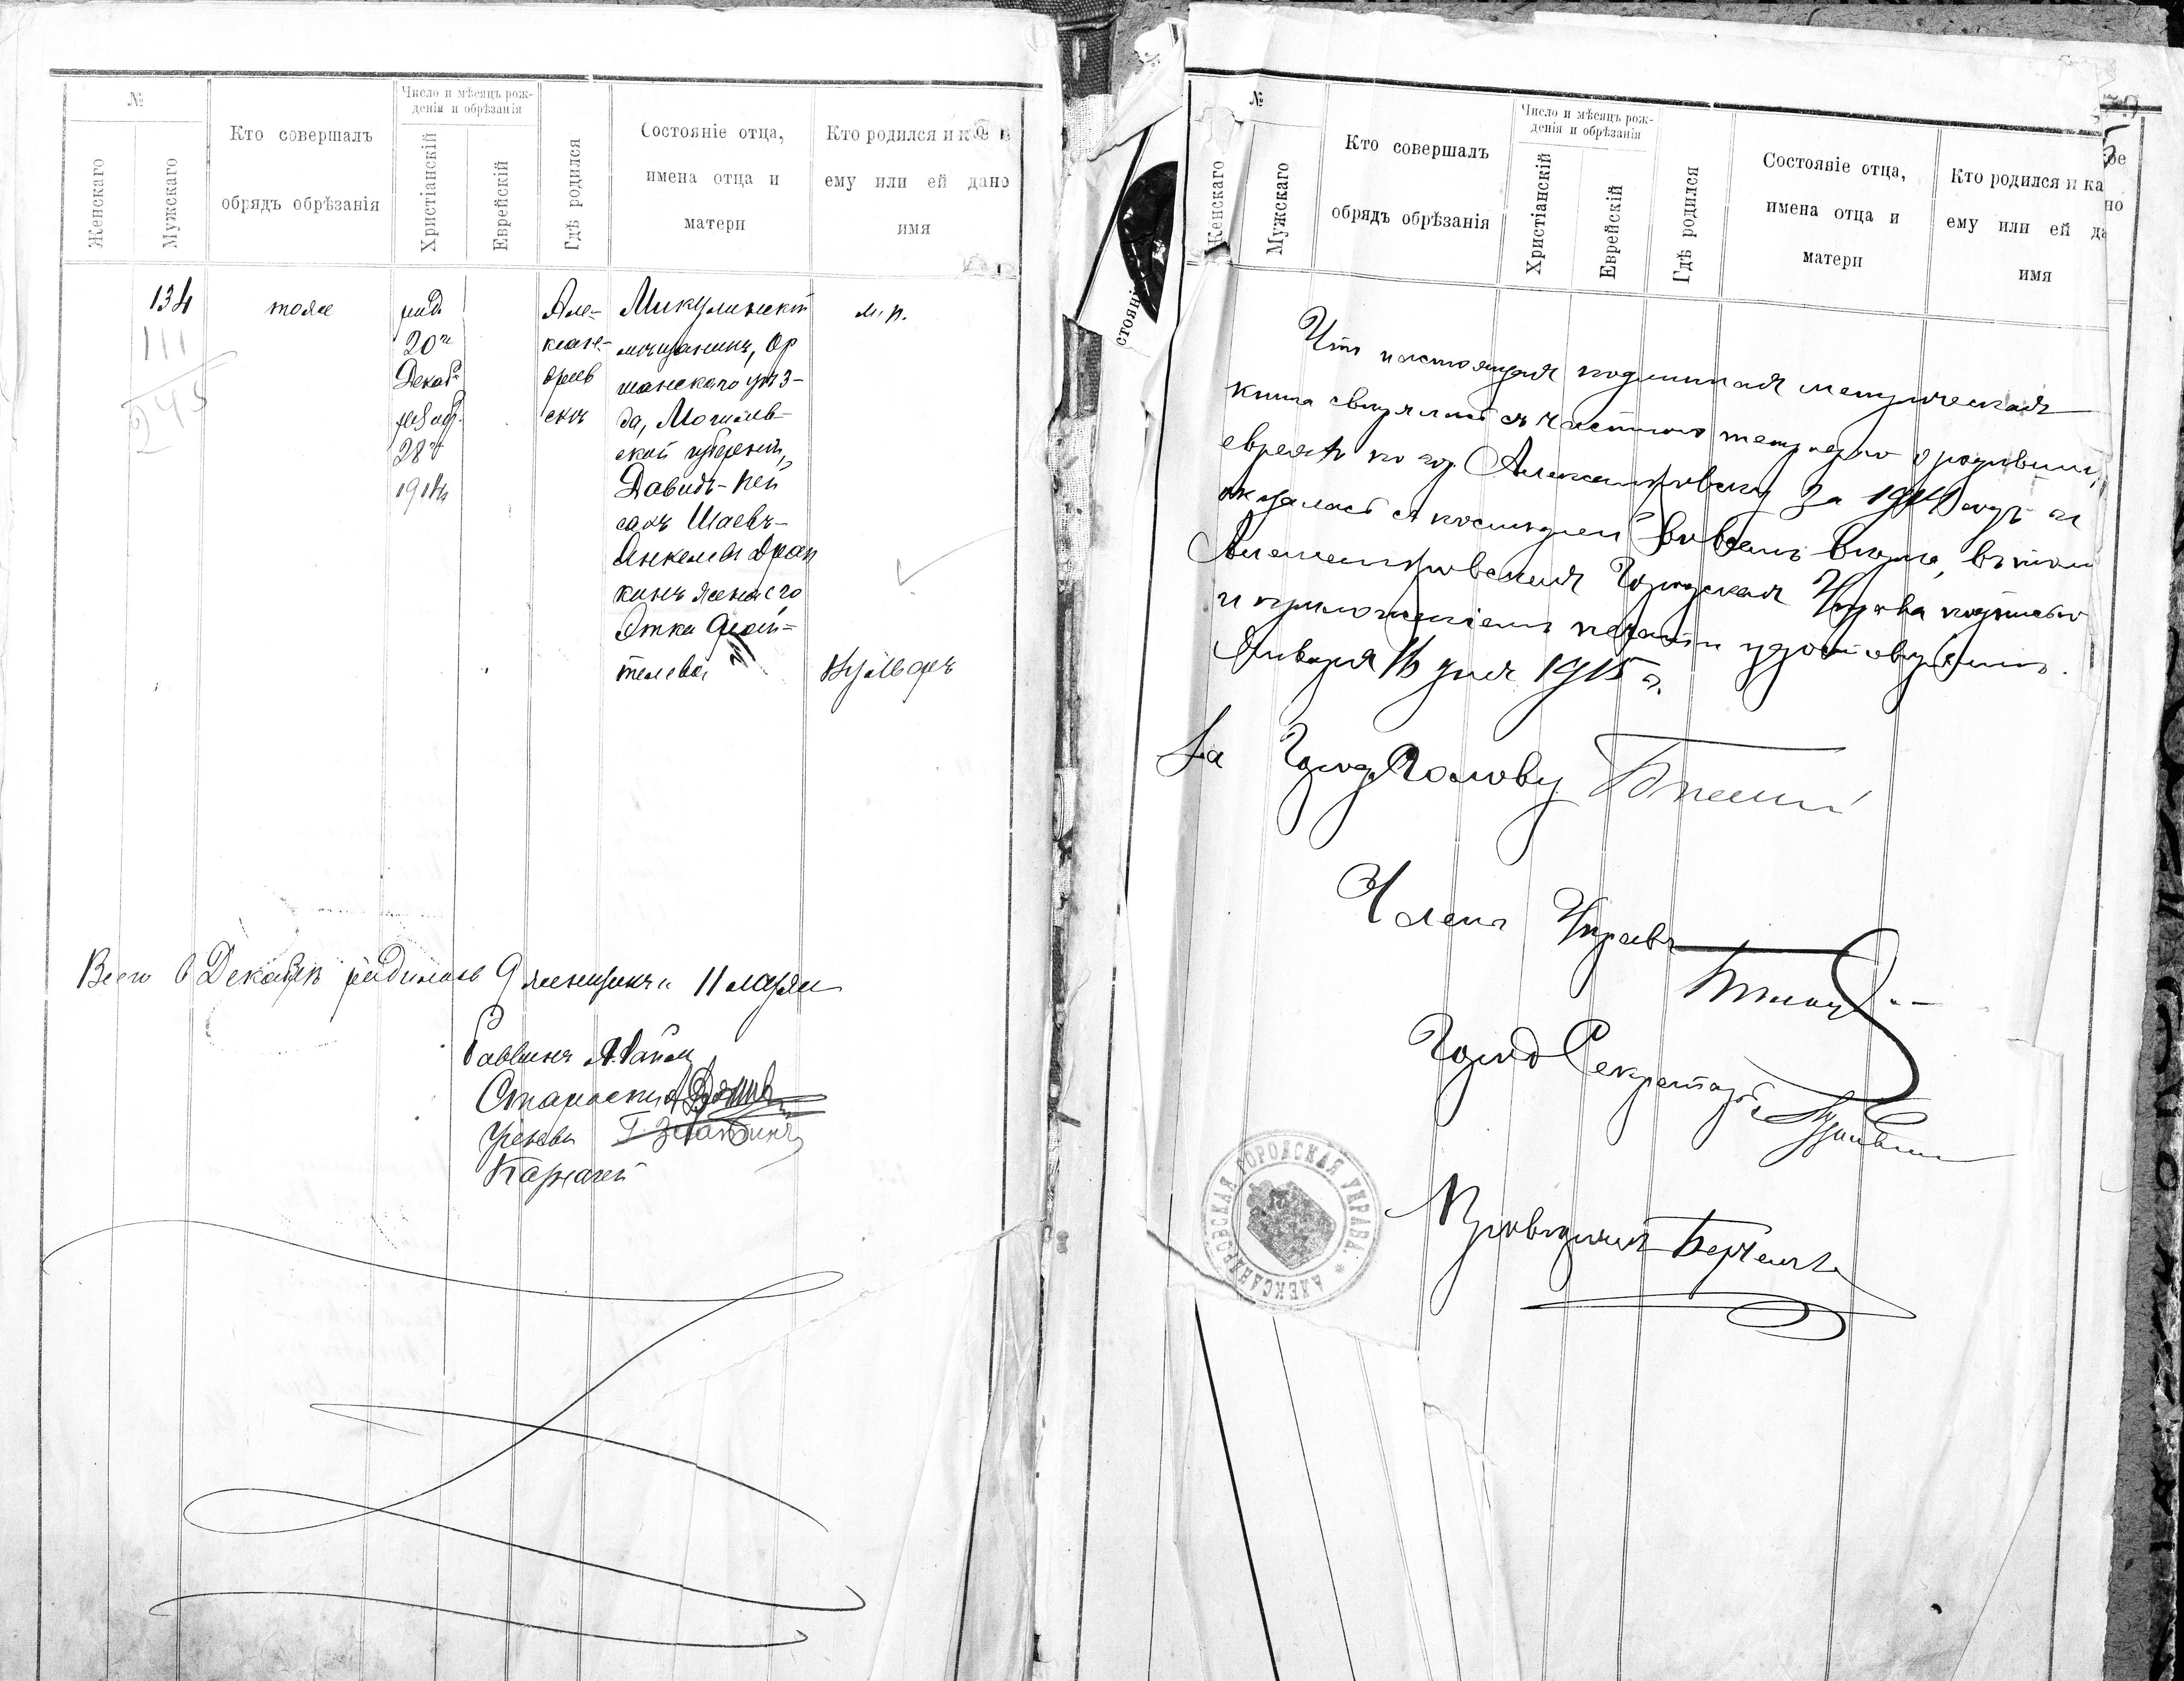 №
Женскаго
Мужскаго
Кто совершалъ
обрядъ обрѣзанія
Число и мѣсяцъ рож-
денія и обрѣзанія
Христіанскій
Еврейскій
Гдѣ родился
Состояніе отца,
имена отца и
матери
Кто родился и к
ему или ей дано
имя
134
111
245
тоже
род.
20го
Декаб.
обр.
28го
1914
Але-
ксан-
дров
скъ
Микулинскій
мѣщанинъ, Ор
шанскаго уѣз-
да, Могилев-
ской губерніи,
Давидъ-Пей
сахъ Шаевъ-
Янкелевъ Драп
кинъ жена его
Этка
телева
м. р.
Вульфъ
Всего в Декабрѣ родилось 9 женщинъ и 11 мужч
Раввинъ
Староста
Ученый Г. Златкинъ
Казначей
№
Женскаго
Мужскаго
Кто совершалъ
обрядъ обрѣзанія
Число и мѣсяцъ рож-
денія и обрѣзанія
Христіанскій
Еврейскій
Гдѣ родился
Состояніе отца,
имена отца и
матери
Кто родился и ка
ему или ей да
имя
ое
но
стояні
Что настоящая подлинная метрическая
книга свѣрялась съ частною тетрадью о родивши
евреяхъ по гор. Александровску за 1914 годъ и
оказалась съ послѣдней во всемъ вѣрна, въ томъ
Александровская Городская Управа подписью
и приложеніемъ печати удостовѣряетъ.
Января 16 дня 1915 г.
За Город. Голову
Членъ Управы
Город Секретарь
АЛЕКСАНДРОВСКАЯ ГОРОДСКАЯ УПРАВА